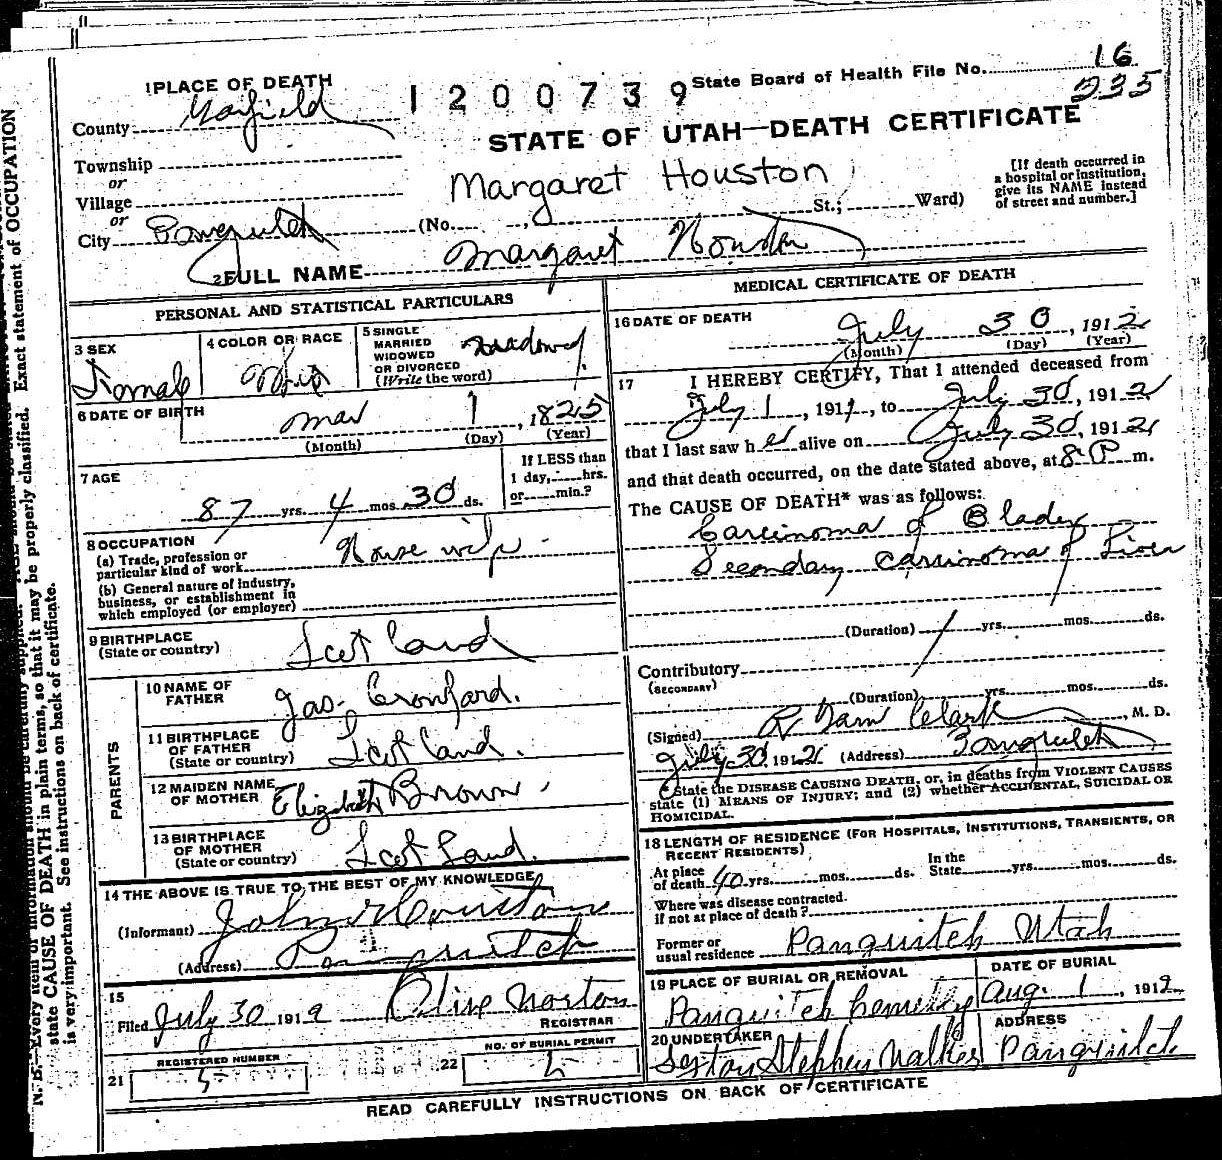 1 PLACE OF DEATH
County Garfield
Township
or
Village
or
City Panguitch
1200739
State Board of Health File No. 16
235
STATE OF UTAH—DEATH CERTIFICATE
Margaret Houston
[If death occurred in
a hospital or institution,
give its NAME instead
of street and number.]
(No. , St.; Ward)
2 FULL NAME Margaret Houston
PERSONAL AND STATISTICAL PARTICULARS
3 SEX
Female
4 COLOR OR RACE
White
5 SINGLE
MARRIED
WIDOWED
OR DIVORCED
(Write the word)
Widowed
6 DATE OF BIRTH
Mar 1, 1825
(Month) (Day) (Year)
7 AGE
87 yrs. 4 mos. 30 ds.
If LESS than
1 day, hrs.
or min.?
8 OCCUPATION
(a) Trade, profession or
particular kind of work House wife
(b) General nature of industry,
business, or establishment in
which employed (or employer)
9 BIRTHPLACE
(State or country) Scotland
PARENTS
10 NAME OF
FATHER Jas. Cronford.
11 BIRTHPLACE
OF FATHER
(State or country) Scotland.
12 MAIDEN NAME
OF MOTHER Elizabeth Brown
13 BIRTHPLACE
OF MOTHER
(State or country) Scotland.
14 THE ABOVE IS TRUE TO THE BEST OF MY KNOWLEDGE
(Informant) John Houston
(Address) Panguitch
15
Filed July 30 1912 Olive Norton
REGISTRAR
21 REGISTERED NUMBER
5
22 NO. OF BURIAL PERMIT
5
MEDICAL CERTIFICATE OF DEATH
16 DATE OF DEATH
July 30, 1912
(Month) (Day) (Year)
17 I HEREBY CERTIFY, That I attended deceased from
July 1, 1911, to July 30, 1912
that I last saw her alive on July 30, 1912
and that death occurred, on the date stated above, at 8 P m.
The CAUSE OF DEATH* was as follows:
Carcinoma of Blader
Secondary Carcinoma of Liver
(Duration) 1 yrs. mos. ds.
Contributory
(SECONDARY)
(Duration) yrs. mos. ds.
(Signed) R Garn Clark, M. D.
July 30, 1912 (Address) Panguitch
State the DISEASE CAUSING DEATH, or, in deaths from VIOLENT CAUSES
state (1) MEANS OF INJURY; and (2) whether ACCIDENTAL, SUICIDAL OR
HOMICIDAL.
18 LENGTH OF RESIDENCE (FOR HOSPITALS, INSTITUTIONS, TRANSIENTS, OR
RECENT RESIDENTS)
At place
of death 40 yrs. mos. ds.
In the
State yrs. mos. ds.
Where was disease contracted.
if not at place of death?
Former or
usual residence Panguitch Utah
19 PLACE OF BURIAL OR REMOVAL
Panguitch Cemetery
DATE OF BURIAL
Aug. 1, 1912
20 UNDERTAKER
Sexton Stephen Walker
ADDRESS
Panguitch
READ CAREFULLY INSTRUCTIONS ON BACK OF CERTIFICATE
N. B.—Every item of information should be carefully supplied.
state CAUSE OF DEATH in plain terms, so that it may be properly classified. Exact statement of OCCUPATION
is very important. See instructions on back of certificate.